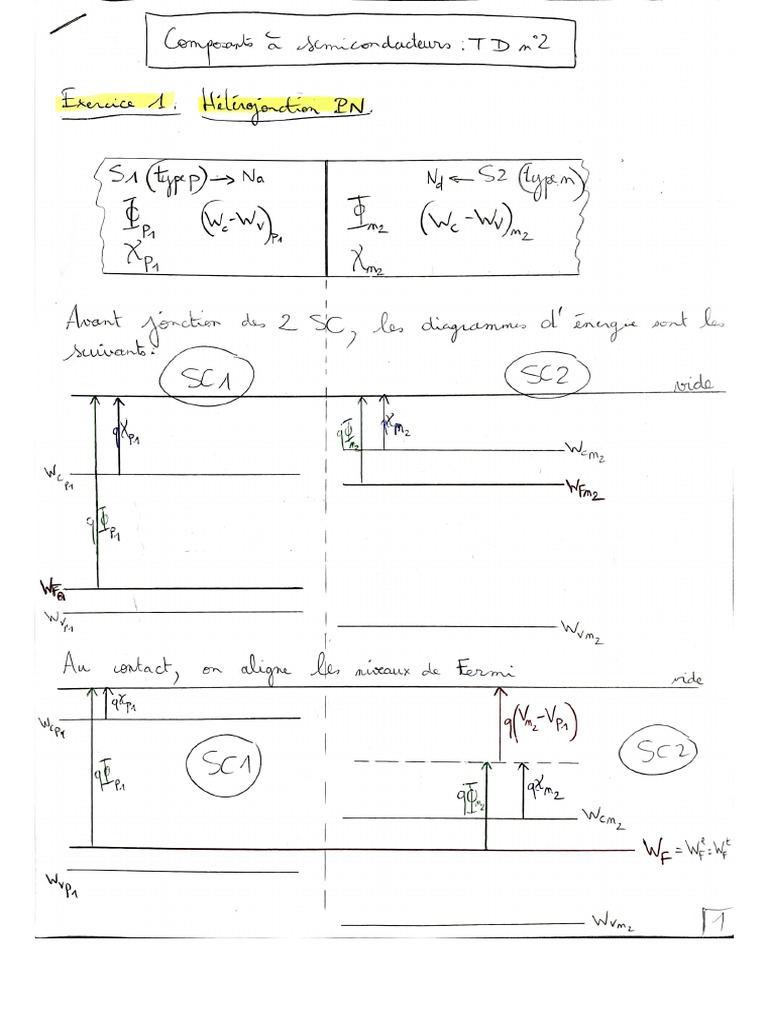 Composants à semiconducteurs : TD n°2
Exercice 1. Hétérojonction PN.
S1 (type p) → Na
Nd ← S2 (type n)
Φp1 (Wc-Wv)p1
Φn2 (Wc-Wv)n2
χp1
χn2
Avant jonction des 2 SC, les diagrammes d'énergie sont les
suivants:
SC1
SC2
vide
qχp1
qΦn2
χn2
Wcn2
Wcp1
WFn2
qΦp1
Wvp1
Wvn2
Au contact, on aligne les niveaux de Fermi
vide
qχp1
q(Vn2-Vp1)
Wcp1
SC1
SC2
qΦp1
qΦn2
qχn2
Wcn2
WF
Wvp1
Wvn2
1